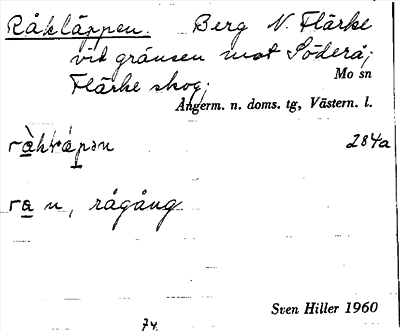 Råkläppen. Berg N. Flärke
vid gränsen mot Söderå;
Flärke skog;
Mo sn
Ångerm. n. doms. tg, Västern. l.
284a
ra n, rågång
Sven Hiller 1960
74